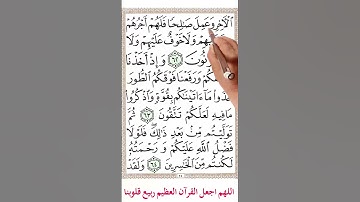 ٱلۡأٓخِرِ وَعَمِلَ صَٰلِحٗا فَلَهُمۡ أَجۡرُهُمۡ
وَلَا خَوۡفٌ عَلَيۡهِمۡ وَلَا
٦٢ وَإِذۡ أَخَذۡنَا
وَرَفَعۡنَا فَوۡقَكُمُ ٱلطُّورَ
مَآ ءَاتَيۡنَٰكُم بِقُوَّةٖ وَٱذۡكُرُواْ
مَا فِيهِ لَعَلَّكُمۡ تَتَّقُونَ ٦٣ ثُمَّ
تَوَلَّيۡتُم مِّنۢ بَعۡدِ ذَٰلِكَۖ فَلَوۡلَا
فَضۡلُ ٱللَّهِ عَلَيۡكُمۡ وَرَحۡمَتُهُۥ
لَكُنتُم مِّنَ ٱلۡخَٰسِرِينَ ٦٤ وَلَقَدۡ
اللهم اجعل القرآن العظيم ربيع قلوبنا